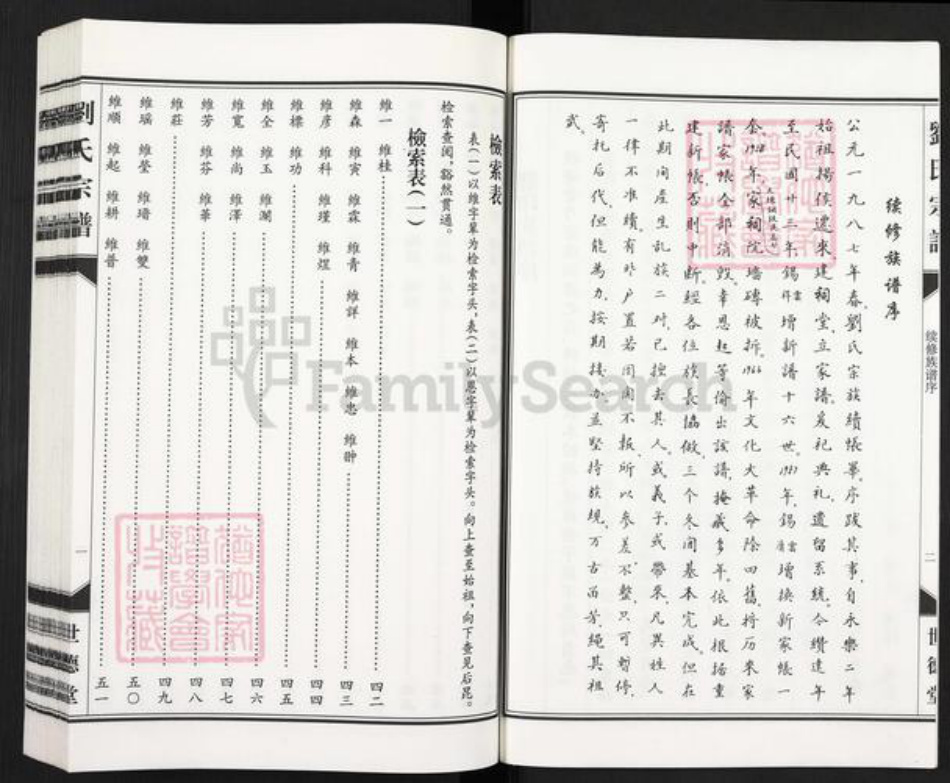 续修族谱序
公元一九八七年春劉氏宗族續帳畢序跋其事自永樂二年
始祖揚侯遷来建祠堂立家譜爰祀典礼遺留系統今纘違年
至民國廿三年錫雲祥增新譜十六世1987年錫雲增换新家帳一
年家祠院墻磚被拆1966年文化大革命除四舊将历来家
譜家帳全部消毁幸恩起等偷出該譜掩藏多年依此根据重
建新帳否則中断經各位族長協做三个冬间基本完成但在
此期间産生乱族二对已擅去其人或義子或帶来凡異姓人
一律不准續有昨户置若罔闻不报所以参差不整只可暫停
寄托后代但能為力按期接办並堅持族規万古留芳繩其祖
武
续修族谱序
二
世德堂
劉氏宗譜
一
世德堂
檢索表
表(一)以維字輩为检索字头,表(二)以恩字輩为检索字头。向上查至始祖,向下查见后昆。
检索查阅,豁然贯通。
檢索表(一)
維一 維桂 四二
維森 維寅 維霖 維青 維詳 維本 維忠 維翀 四三
維彦 維科 維瑾 維煜 四四
維標 維功 四五
維全 維玉 維瀾 四六
維寬 維尚 維澤 四七
維芳 維芬 維華 四八
維莊 四九
維瑶 維瑩 維瑨 維雙 五〇
維順 維起 維耕 維普 五一
FamilySearch